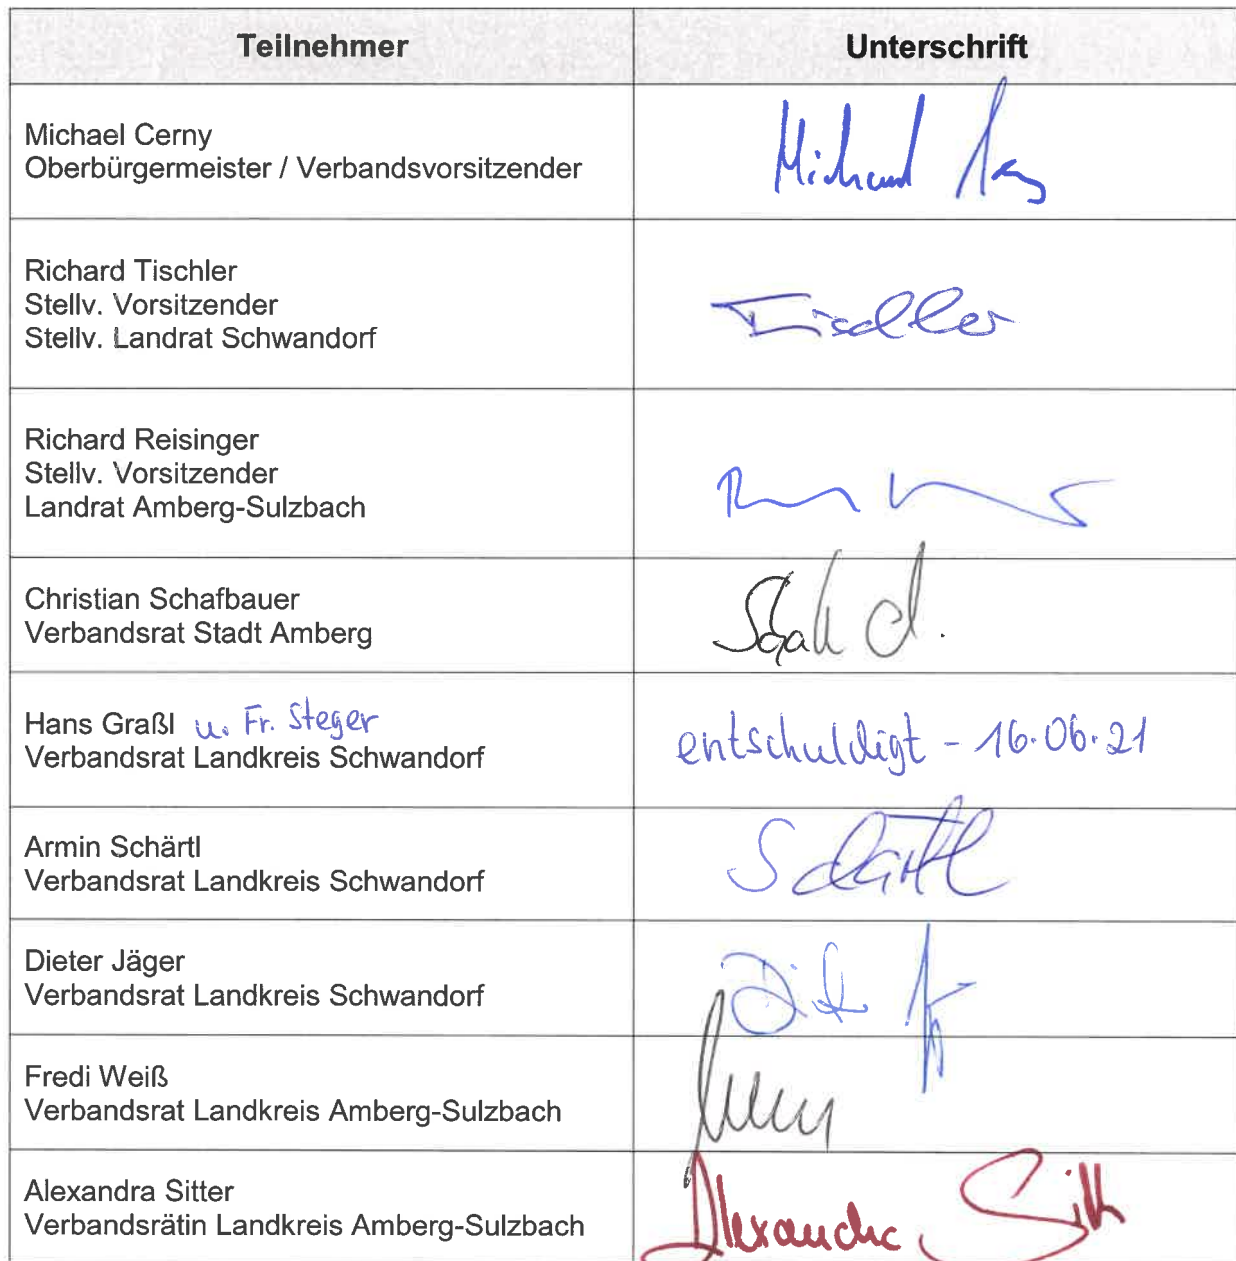 Teilnehmer Unterschrift
Michael Cerny
Oberbürgermeister / Verbandsvorsitzender
Michael
Richard Tischler
Stellv. Vorsitzender
Stellv. Landrat Schwandorf
Tischler
Richard Reisinger
Stellv. Vorsitzender
Landrat Amberg-Sulzbach
Christian Schafbauer
Verbandsrat Stadt Amberg
Hans Graßl u. Fr. Steger
Verbandsrat Landkreis Schwandorf
entschuldigt - 16.06.21
Armin Schärtl
Verbandsrat Landkreis Schwandorf
Schärtl
Dieter Jäger
Verbandsrat Landkreis Schwandorf
Fredi Weiß
Verbandsrat Landkreis Amberg-Sulzbach
Alexandra Sitter
Verbandsrätin Landkreis Amberg-Sulzbach
Alexandra